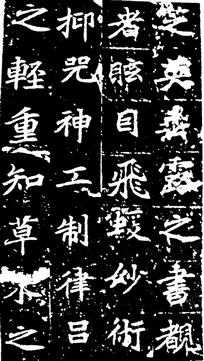 芝英垂露之書覩
者眩目飛妙術
抑咒神工制律呂
之輕重知草木之